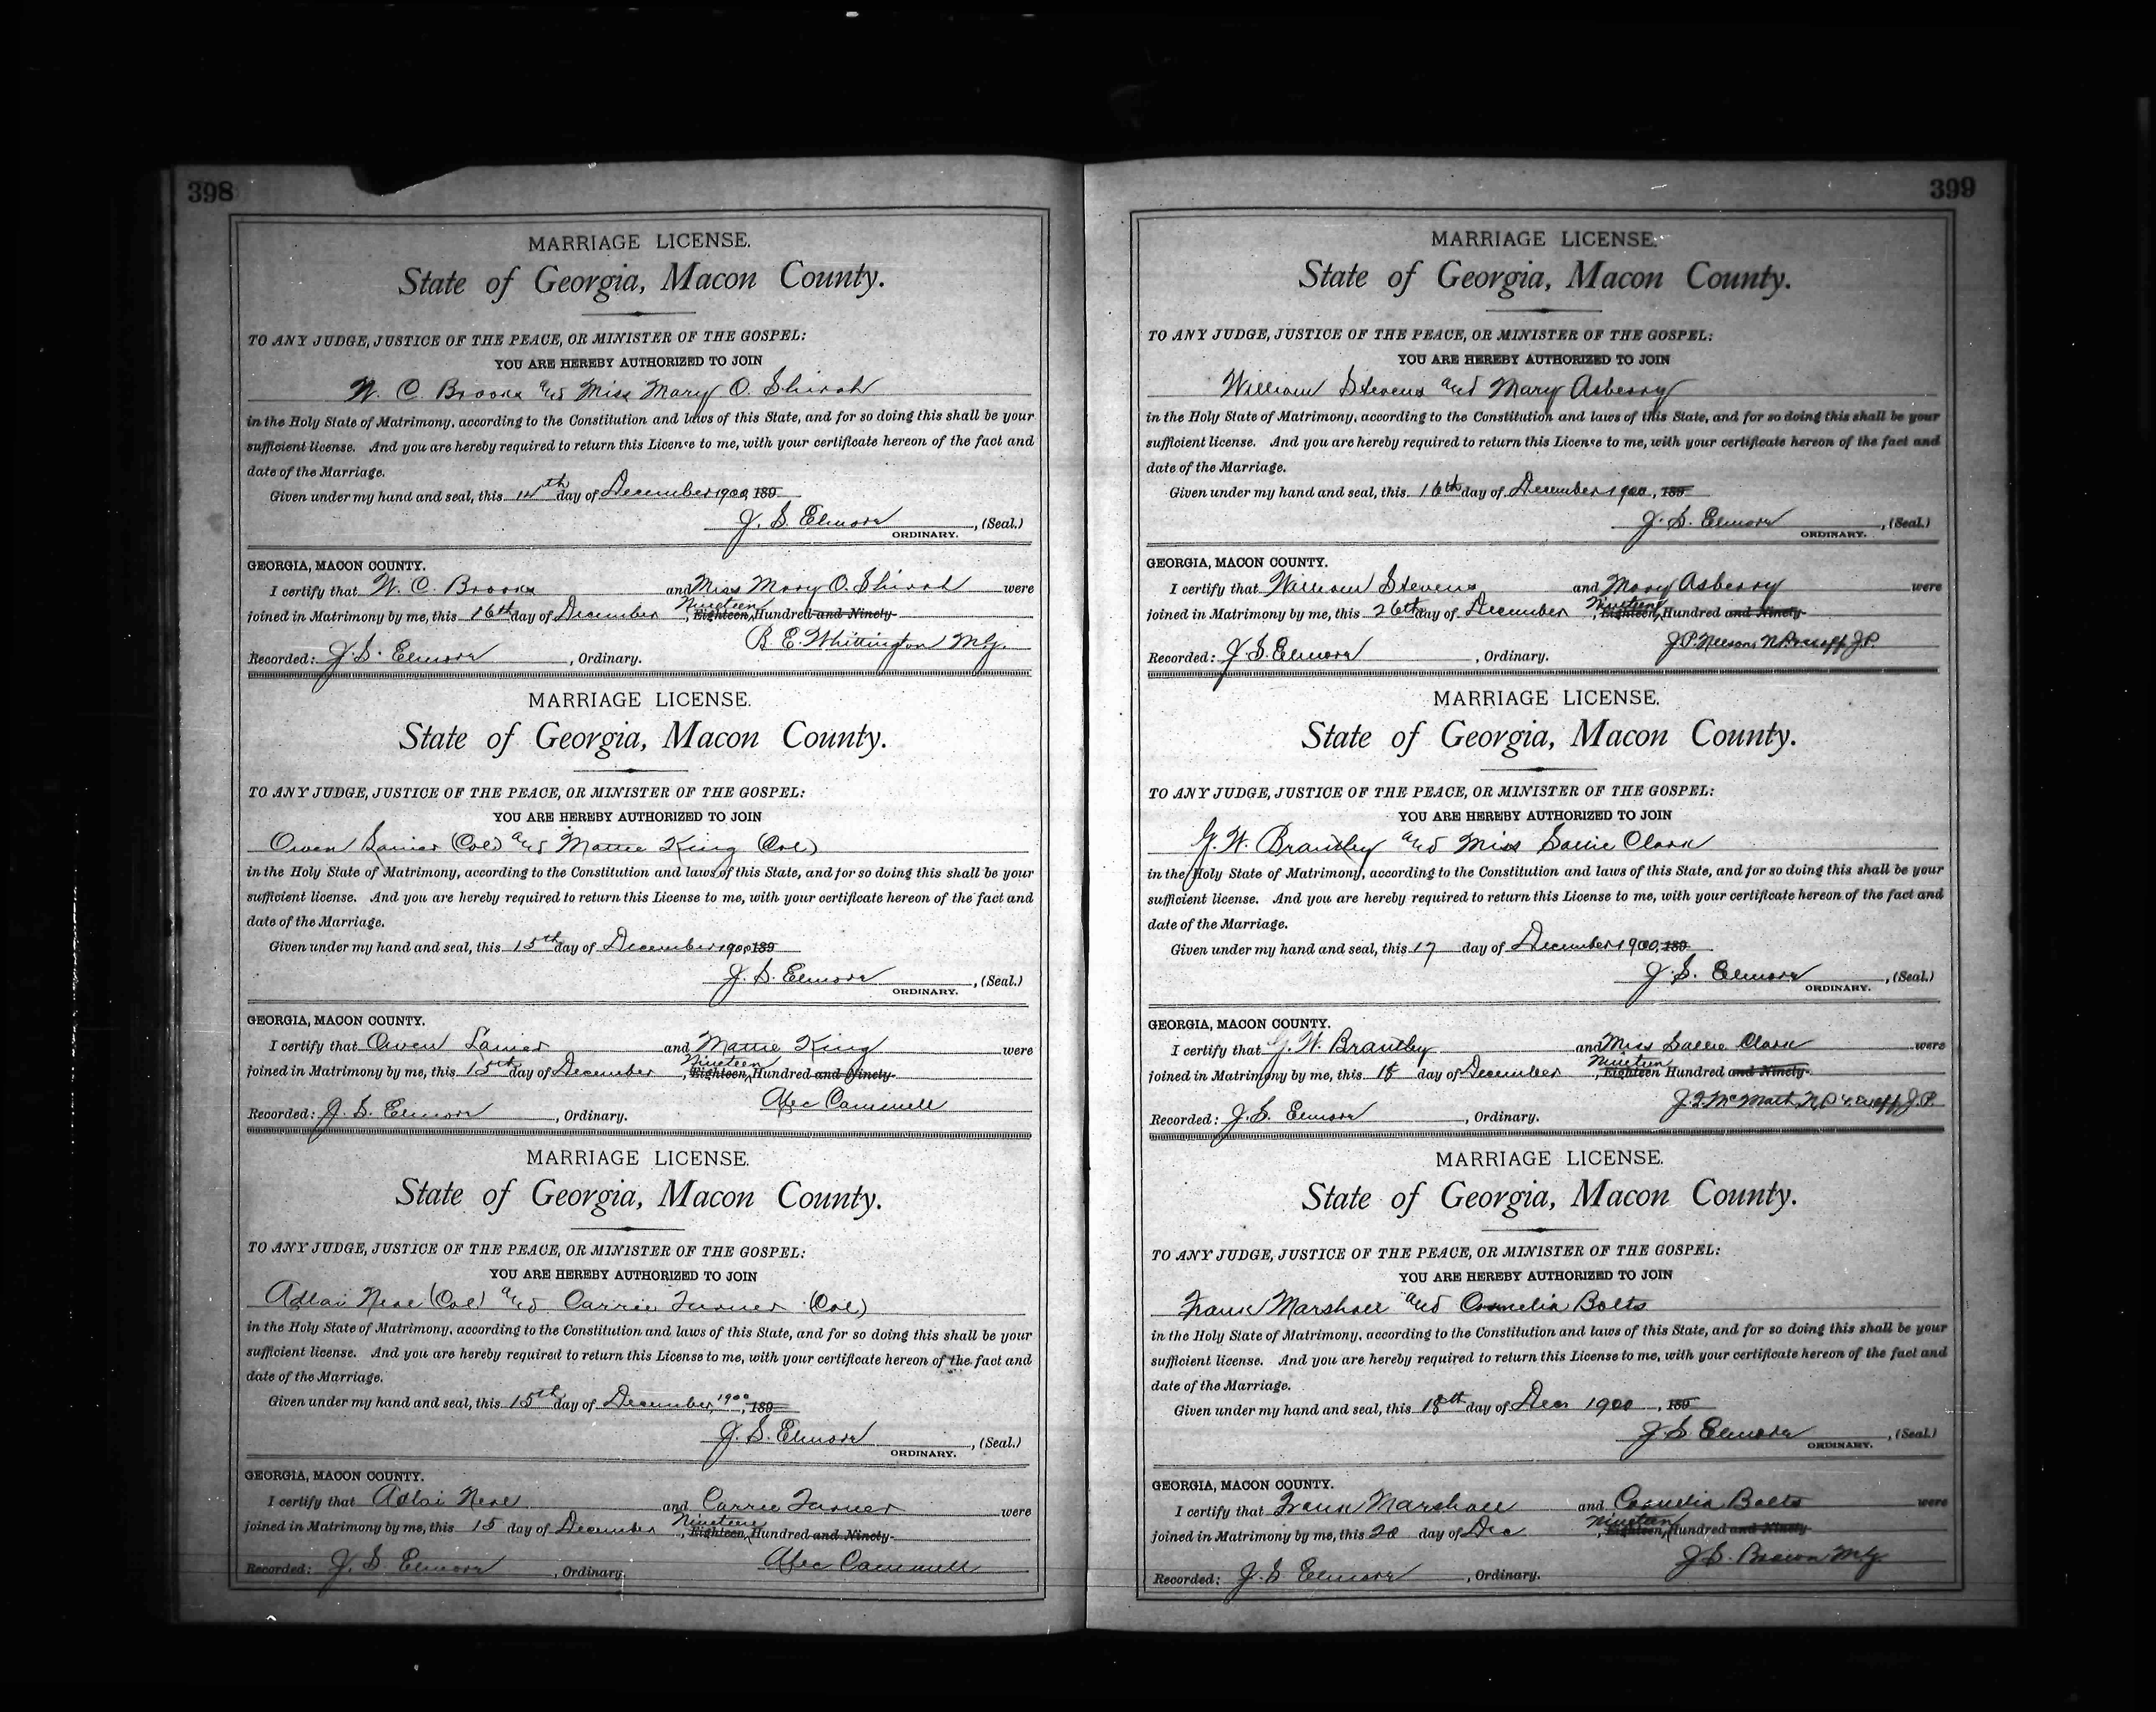 398
MARRIAGE LICENSE.
State of Georgia, Macon County.
TO ANY JUDGE, JUSTICE OF THE PEACE, OR MINISTER OF THE GOSPEL:
YOU ARE HEREBY AUTHORIZED TO JOIN
W. C. Brooks and Miss Mary O. Shirah
in the Holy State of Matrimony, according to the Constitution and laws of this State, and for so doing this shall be your
sufficient license. And you are hereby required to return this License to me, with your certificate hereon of the fact and
date of the Marriage.
Given under my hand and seal, this 14th day of December 1900, 189
J. S. Elmore, (Seal.)
ORDINARY.
GEORGIA, MACON COUNTY.
I certify that W. C. Brooks and Miss Mary O. Shirah were
Nineteen
joined in Matrimony by me, this 16th day of December, Eighteen Hundred and Ninety
B. E. Whittington M.G.
Recorded: J. S. Elmore, Ordinary.
MARRIAGE LICENSE.
State of Georgia, Macon County.
TO ANY JUDGE, JUSTICE OF THE PEACE, OR MINISTER OF THE GOSPEL:
YOU ARE HEREBY AUTHORIZED TO JOIN
Owen Lanier (Col) and Mattie King (Col)
in the Holy State of Matrimony, according to the Constitution and laws of this State, and for so doing this shall be your
sufficient license. And you are hereby required to return this License to me, with your certificate hereon of the fact and
date of the Marriage.
Given under my hand and seal, this 15th day of December 1900, 189
J. S. Elmore, (Seal.)
ORDINARY.
GEORGIA, MACON COUNTY.
I certify that Owen Lanier and Mattie King were
Nineteen
joined in Matrimony by me, this 15th day of December, Eighteen, Hundred and Ninety
Alec Cammell
Recorded: J. S. Elmore, Ordinary.
MARRIAGE LICENSE.
State of Georgia, Macon County.
TO ANY JUDGE, JUSTICE OF THE PEACE, OR MINISTER OF THE GOSPEL:
YOU ARE HEREBY AUTHORIZED TO JOIN
Adlai Neal (Col) and Carrie Turner (Col)
in the Holy State of Matrimony, according to the Constitution and laws of this State, and for so doing this shall be your
sufficient license. And you are hereby required to return this License to me, with your certificate hereon of the fact and
date of the Marriage.
Given under my hand and seal, this 15th day of December, 1900, 189
J. S. Elmore, (Seal.)
ORDINARY.
GEORGIA, MACON COUNTY.
I certify that Adlai Neal and Carrie Turner were
Nineteen
joined in Matrimony by me, this 15 day of December, Eighteen, Hundred and Ninety
Alec Cammell
Recorded: J. S. Elmore, Ordinary.
399
MARRIAGE LICENSE.
State of Georgia, Macon County.
TO ANY JUDGE, JUSTICE OF THE PEACE, OR MINISTER OF THE GOSPEL:
YOU ARE HEREBY AUTHORIZED TO JOIN
William Stevens and Mary Asberry
in the Holy State of Matrimony, according to the Constitution and laws of this State, and for so doing this shall be your
sufficient license. And you are hereby required to return this License to me, with your certificate hereon of the fact and
date of the Marriage.
Given under my hand and seal, this 16th day of December 1900, 189
J. S. Elmore, (Seal.)
ORDINARY.
GEORGIA, MACON COUNTY.
I certify that William Stevens and Mary Asberry were
Nineteen
joined in Matrimony by me, this 26th day of December, Eighteen, Hundred and Ninety
J. P. Nelson N.P. & ex off J.P.
Recorded: J. S. Elmore, Ordinary.
MARRIAGE LICENSE.
State of Georgia, Macon County.
TO ANY JUDGE, JUSTICE OF THE PEACE, OR MINISTER OF THE GOSPEL:
YOU ARE HEREBY AUTHORIZED TO JOIN
G. W. Brantley and Miss Sallie Clark
in the Holy State of Matrimony, according to the Constitution and laws of this State, and for so doing this shall be your
sufficient license. And you are hereby required to return this License to me, with your certificate hereon of the fact and
date of the Marriage.
Given under my hand and seal, this 17 day of December 1900, 189
J. S. Elmore, (Seal.)
ORDINARY.
GEORGIA, MACON COUNTY.
I certify that G. W. Brantley and Miss Sallie Clark were
Nineteen
joined in Matrimony by me, this 18 day of December, Eighteen Hundred and Ninety
McMath N.P. & ex off J.P.
Recorded: J. S. Elmore, Ordinary.
MARRIAGE LICENSE.
State of Georgia, Macon County.
TO ANY JUDGE, JUSTICE OF THE PEACE, OR MINISTER OF THE GOSPEL:
YOU ARE HEREBY AUTHORIZED TO JOIN
Frank Marshall and Cornelia Bolts
in the Holy State of Matrimony, according to the Constitution and laws of this State, and for so doing this shall be your
sufficient license. And you are hereby required to return this License to me, with your certificate hereon of the fact and
date of the Marriage.
Given under my hand and seal, this 18th day of Dec 1900, 189
J. S. Elmore, (Seal.)
ORDINARY.
GEORGIA, MACON COUNTY.
I certify that Frank Marshall and Cornelia Bolts were
Nineteen
joined in Matrimony by me, this 20 day of Dec, Eighteen, Hundred and Ninety
J. S. Brown M.G.
Recorded: J. S. Elmore, Ordinary.